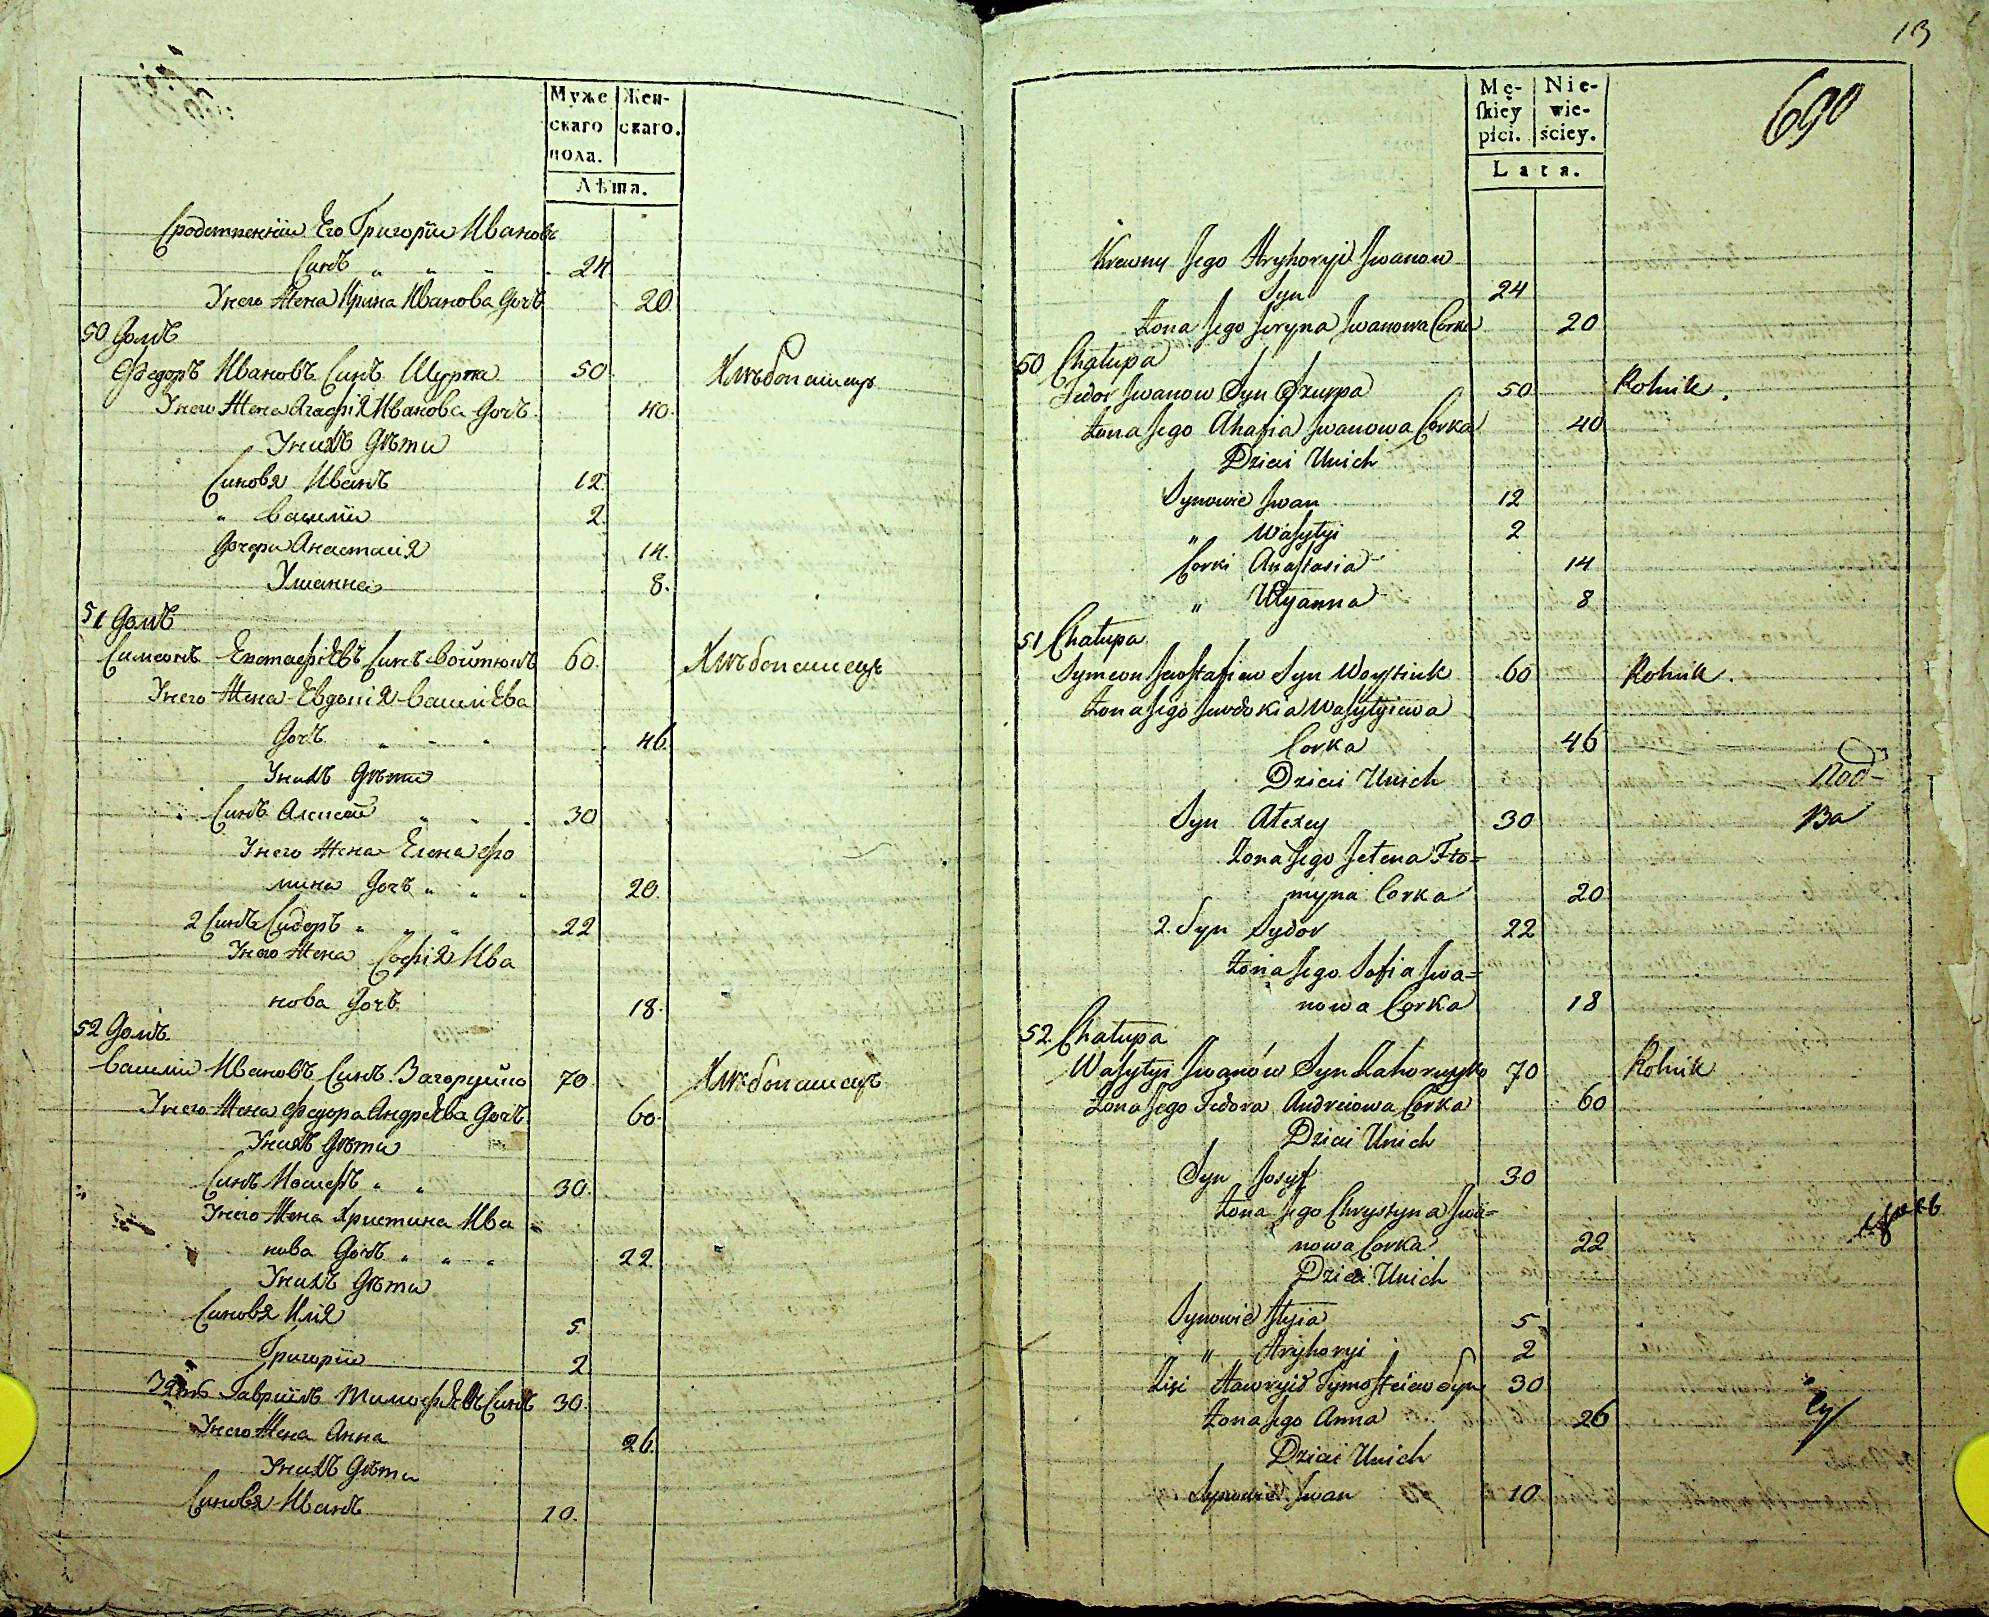 Муже
скаго
пола.
Жен-
скаго.
Лѣта.
Сродственній Его Григорій Ивановъ
Синъ " " " 24
Унего Жена Ирина Иванова Дочъ 20
50 Домъ
Федоръ Ивановъ Синъ Шурпа 50 Хлѣбопашецъ
Унего Жена Агафія Иванова Дочъ 40.
Унихъ Дѣти
Синовя Иванъ 12
" Василій 2.
Дочери Анастасія 14.
Улианна 8.
51 Домъ
Симеонъ Евстафіевъ Синъ Войтюкъ 60. Хлѣбопашецъ
Унего Жена Евдокія Василіева
Дочъ " " " 46
Унихъ Дѣти
Синъ Алексей " " . 30
Унего Жена Елена Фо
мина Дочъ " " " 20.
2 Синъ Сидоръ " " " 22
Унего Жена Софія Ива
нова Дочъ 18.
52 Домъ
Василій Ивановъ Синъ Загоруйко 70 Хлѣбопашецъ
Унего Жена Федора Андрѣева Дочъ 60.
Унихъ Дѣти
Синъ Иосифъ " " 30.
Унего Жена Христина Ива
нова Дочъ " " " 22
Унихъ Дѣти
Синовя Илія 5
Григорій 2
Зять Гавріилъ Тимофѣевъ Синъ 30.
Унего Жена Анна 26
Унихъ Дѣти
Синовя Иванъ 10.
13
690
Mę-
skiey
płci.
Nie-
wie-
ściey.
Lata.
Krewny Jego Hryhoryi Jwanow
Syn 24
Żona Jego Jeryna Jwanowa Corka 20
50 Chałupa
Fedor Jwanow Syn Szurpa 50 Rolnik.
Żona Jego Ahafia Jwanowa Corka 40
Dzieci Unich
Synowie Jwan 12
" Wasylyi 2
Corki Anastasia 14
" Ulyanna 8
51 Chałupa
Symeon Jewstafiew Syn Woytiuk 60 Rolnik.
Żona Jego Jewdokia Wasylyiewa
Corka 46
Dzieci Unich
Syn Alexey 30
Żona Jego Jelena Fto=
myna Corka 20
2. Syn Sydor 22
Żona Jego Sofia Jwa=
nowa Corka 18
52 Chałupa
Wasylyi Jwanów Syn Zahoruyko 70 Rolnik
Żona Jego Fedora Andreiowa Corka 60
Dzieci Unich
Syn Josyf 30
Żona Jego Chrystyna Jwa=
nowa Corka 22
Dzieci Unich
Synowie Jlyia 5
" Hryhoryi 2
Zięć Hawryił Tymofteiew Syn 30
Żona Jego Anna 26
Dzieci Unich
Synowie Jwan 10